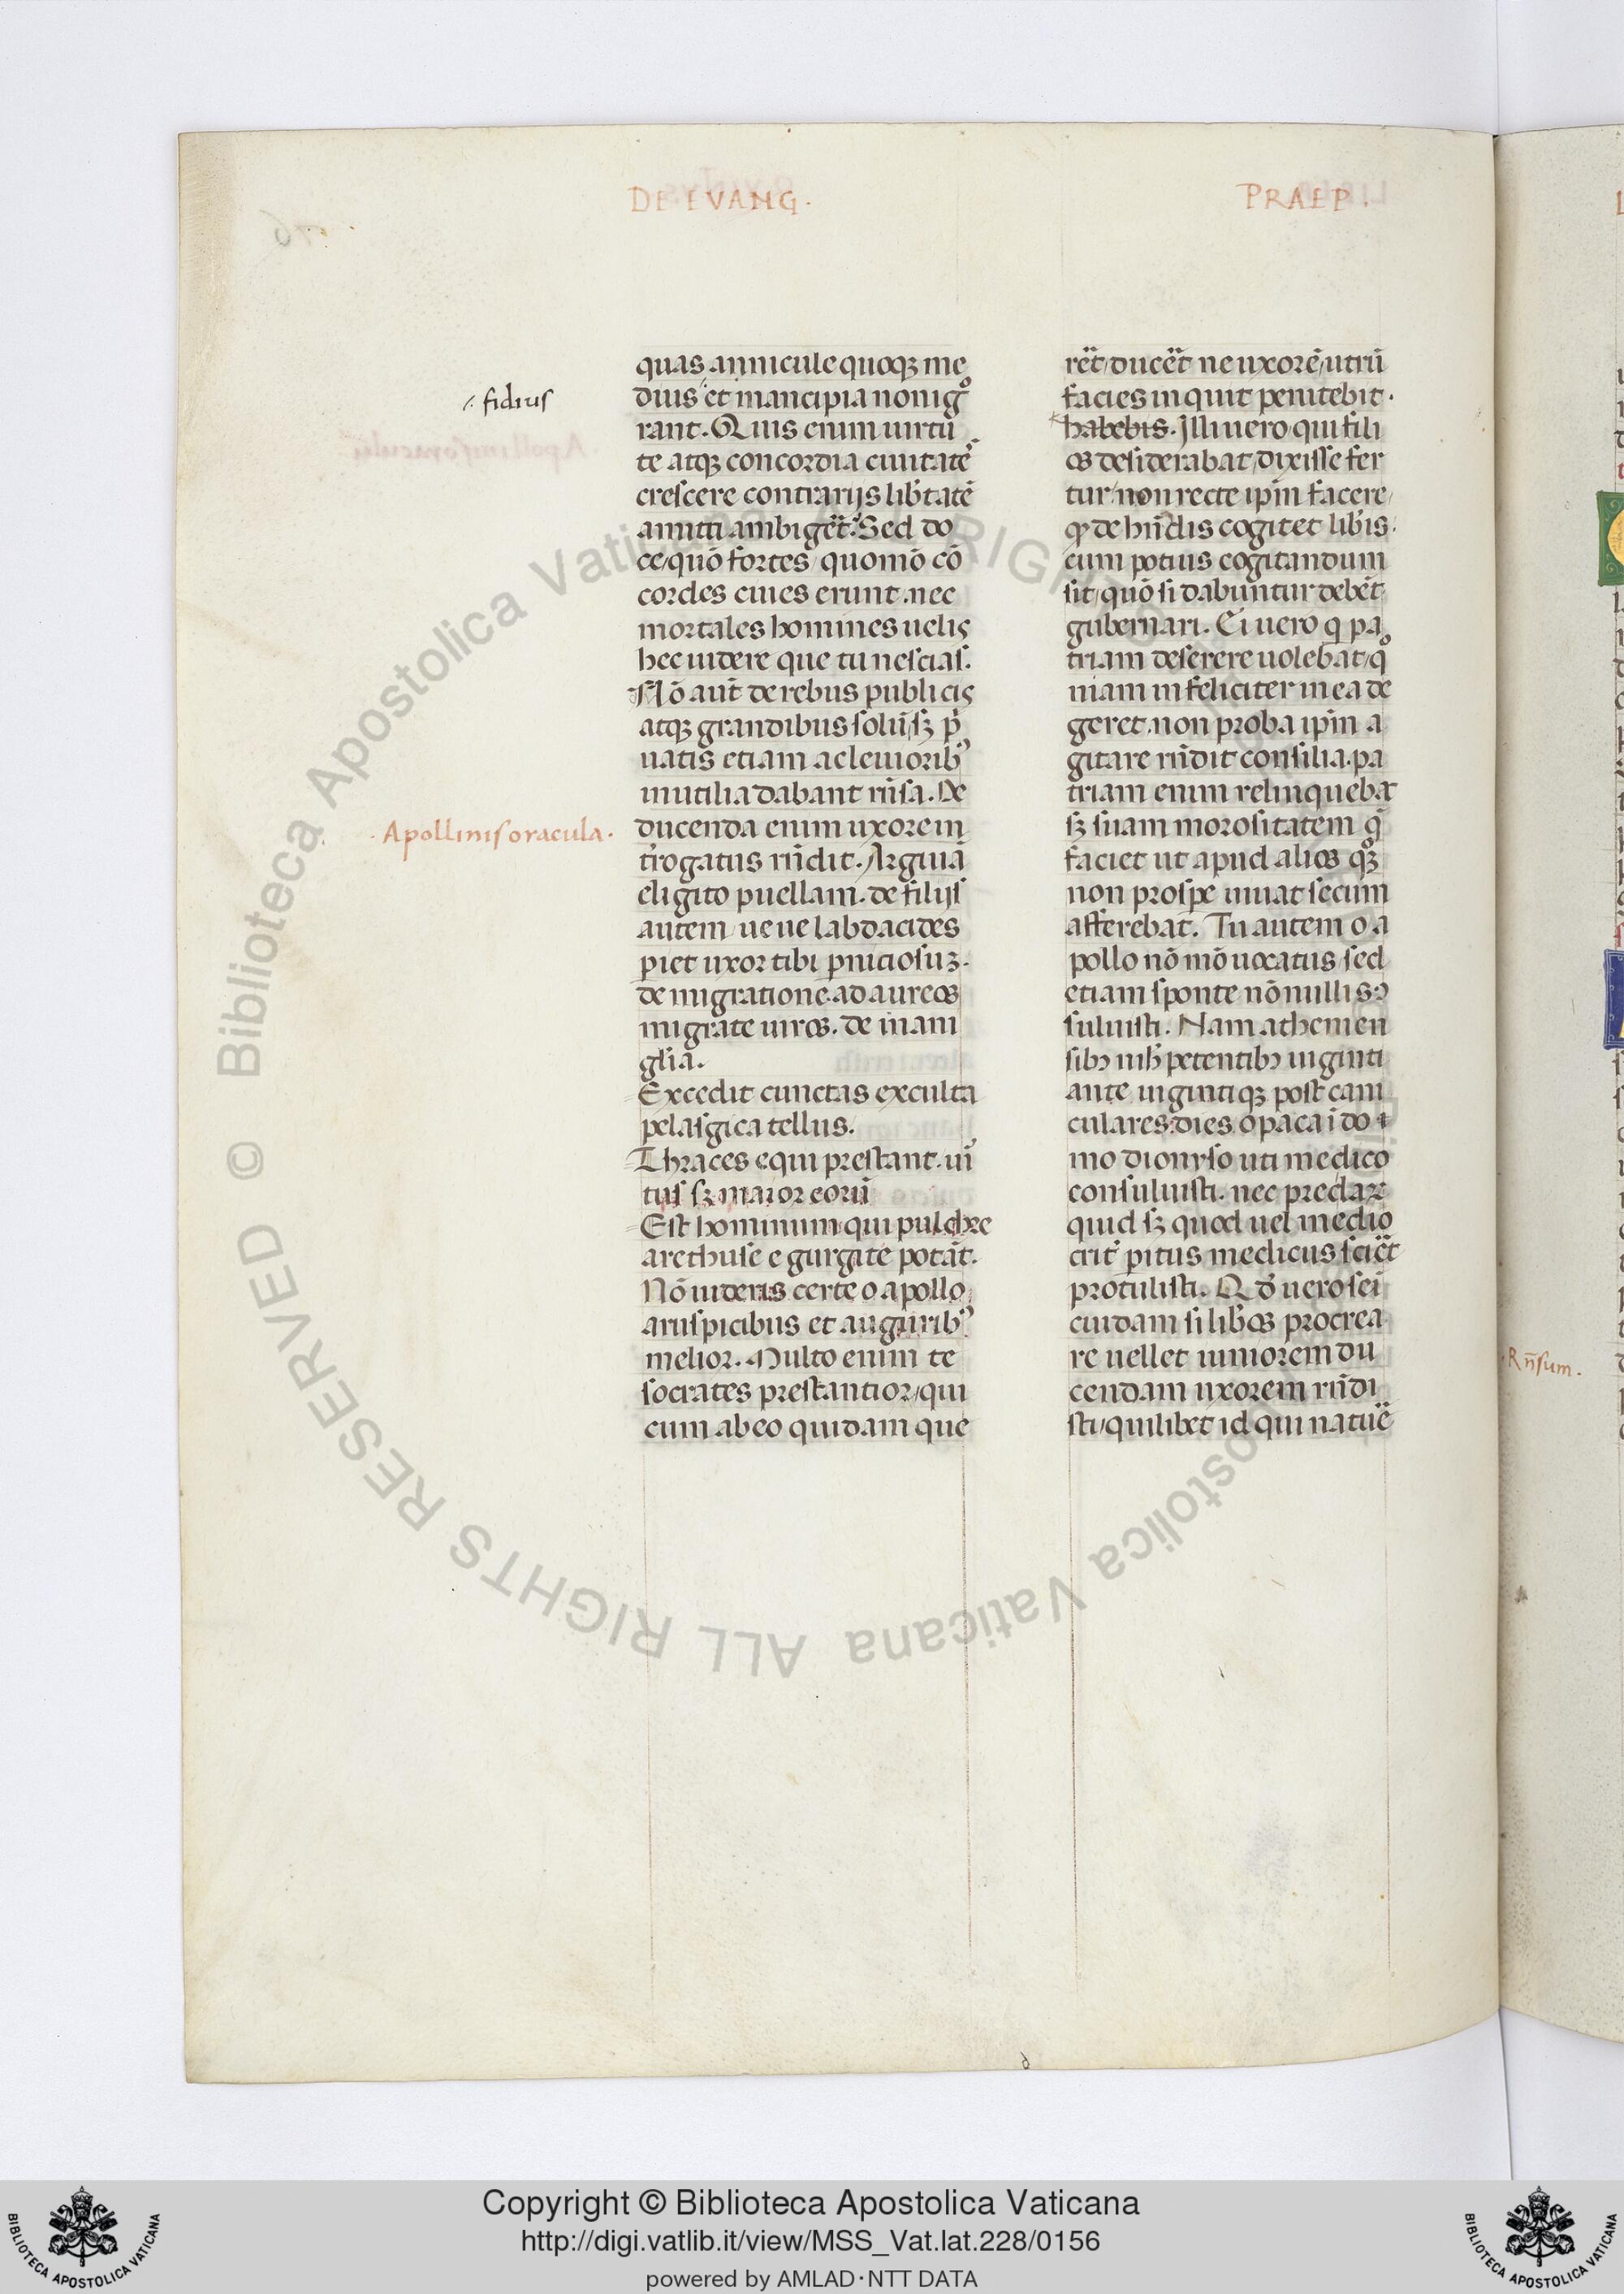 DE EVANG.
PRAEP.
quas anniculę quoqꝫ me
dius et mancipia non ig̊
⸫ fidius
rant. Quis enim uirtu
te atqꝫ concordia ciuitatē
crescere contrarijs lib̄tatē
amitti ambiget̄. Sed do
ce quō fortes quomō cō
cordes ciues erunt. nec
mortales homines uelis
hec uidere que tu nescias.
Nō aut̄ de rebus publicis
atqꝫ grandibus solū sꝫ p̄
uatis etiam ac leuiorib'
inutilia dabant rn̄sa. De
ducenda enim uxorem
.Apollinis oracula.
īrogatus rn̄dit. Argiuā
eligito puellam. de filijs
autem ueue labdacides
piet uxor tibi ꝑniciosuꝫ.
de migratione ad aureos
migrate uiros. de inani
gl̄ia.
Excedit cunctas exculta
pelasgica tellus.
Thraces equi prestant. uī
tus sꝫ maior eorū
Est hominum qui pulchre
arethuse e gurgite potāt.
Nō uideris certe o apollo
aruspicibus et augurib'
melior. Multo enim te
socrates prestantior qui
cum ab eo quidam que
ret̄ ducet̄ ne uxorē utrū
facies inquit penitebit.
habebis. Illi uero qui fili
os desiderabat dixisse fer
tur non recte ip̄m facere
ꝙ de hn̄dis cogitet lib̄is.
cum potius cogitandum
sit quō si dabuntur debēt
gubernari. Ei uero q pa
triam deserere uolebat q̊
niam infeliciter in ea de
geret. non proba ip̄m a
gitare rn̄dit consilia. pa
triam enim relinquebat
sꝫ suam morositatem q̄
faciet ut apud alios q̊ꝫ
non prospe uiuat secum
afferebat. Tu autem o a
pollo nō mō uocatus sed
etiam sponte nōnullis ↄ
suluisti. Nam athenien
sibꝫ nihꝫ petentibꝫ uiginti
ante uigintiqꝫ post cani
culares dies opaca ī do
mo dionyso uti medico
consuluisti. nec preclaꝝ
quid sꝫ quod uel medio
crit̄ ꝑitus medicus sciet̄
protulisti. Qd̄ uero sei
cuidam si lib̄os procrea
re uellet iuniorem du
cendam uxorem rn̄di
sti quilibet id qui natuē
.Rn̄sum.
Copyright © Biblioteca Apostolica Vaticana
http://digi.vatlib.it/view/MSS_Vat.lat.228/0156
powered by AMLAD·NTT DATA
BIBLIOTECA APOSTOLICA VATICANA
BIBLIOTECA APOSTOLICA VATICANA
© Biblioteca Apostolica Vaticana ALL RIGHTS RESERVED